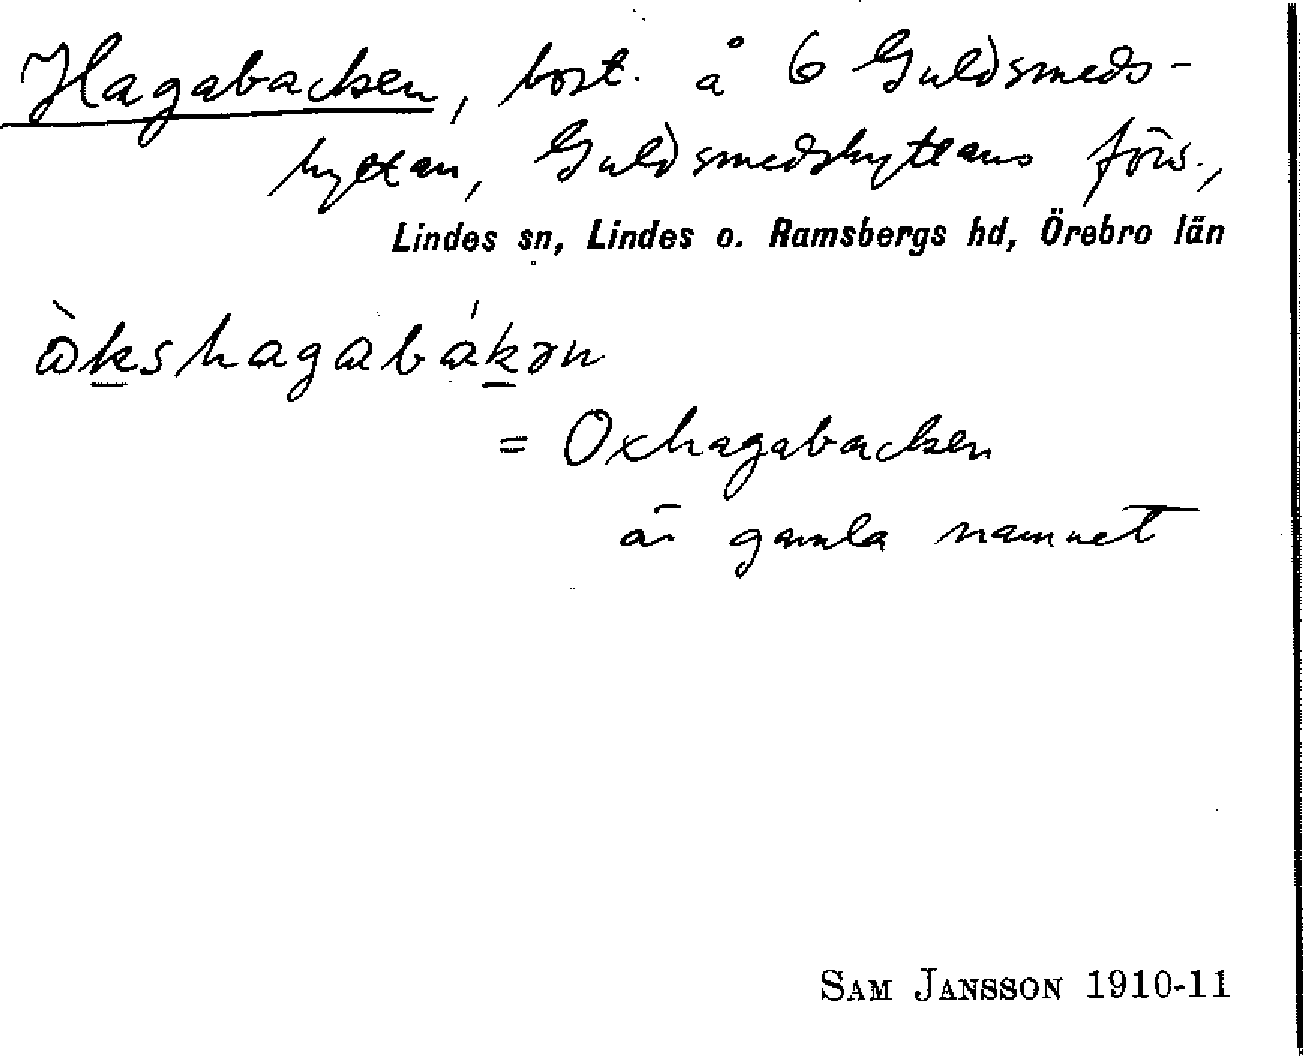 Hagabacken, bost. å 6 Guldsmeds-
hyttan, Guldsmedshyttans förs.,
Lindes sn, Lindes o. Ramsbergs hd, Örebro län
ὼkshagabákən
= Oxhagabacken
är gamla namnet
SAM JANSSON 1910-11